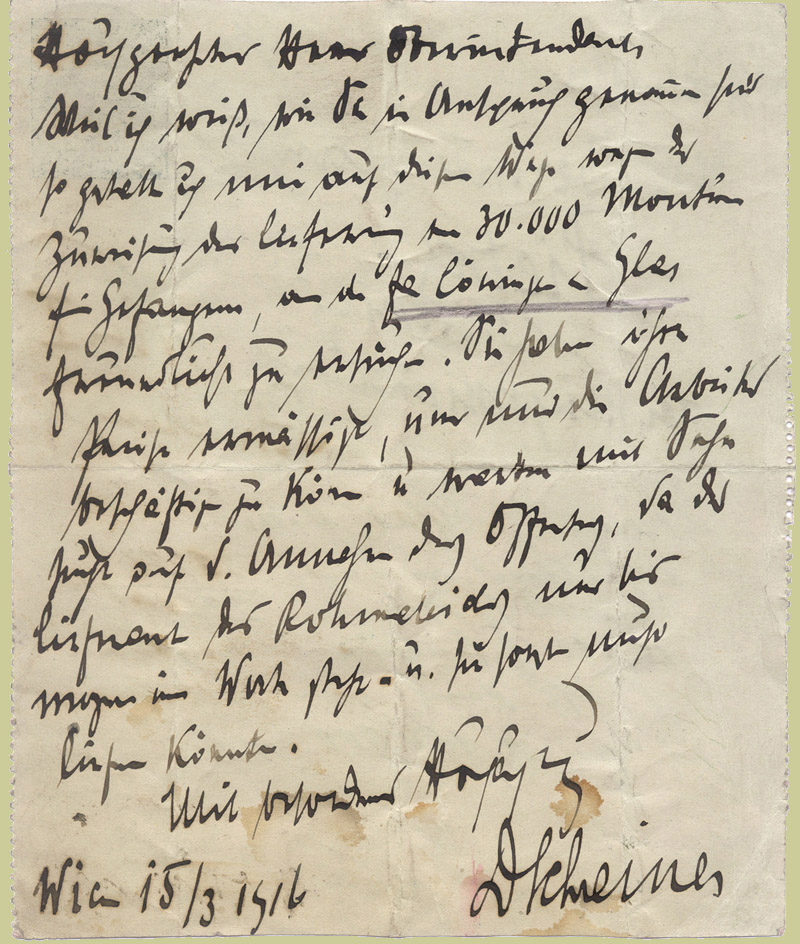 Hochgeehrter Herr Oberintendant
Weil ich weiß, wie Sie in Anspruch genommen sind
so gestatte ich mir auf diesem Wege wegen der
Zuweisung der Lieferung von 30.000 Monturen
für Gefangene, an die Fa Löwinger & Glas
freundlichst zu ersuchen. Sie haben ihre
Preise ermässigt, um nur die Arbeiter
beschäftigen zu können u warten mit Sehn
sucht auf d. Annehmen der Offerten, da der
Lieferant des Rohmaterials nur bis
morgen im Wort steht u. sie sonst nicht
liefern könnte.
Mit besonderer
Wien 15/3 1916 DSchreiner